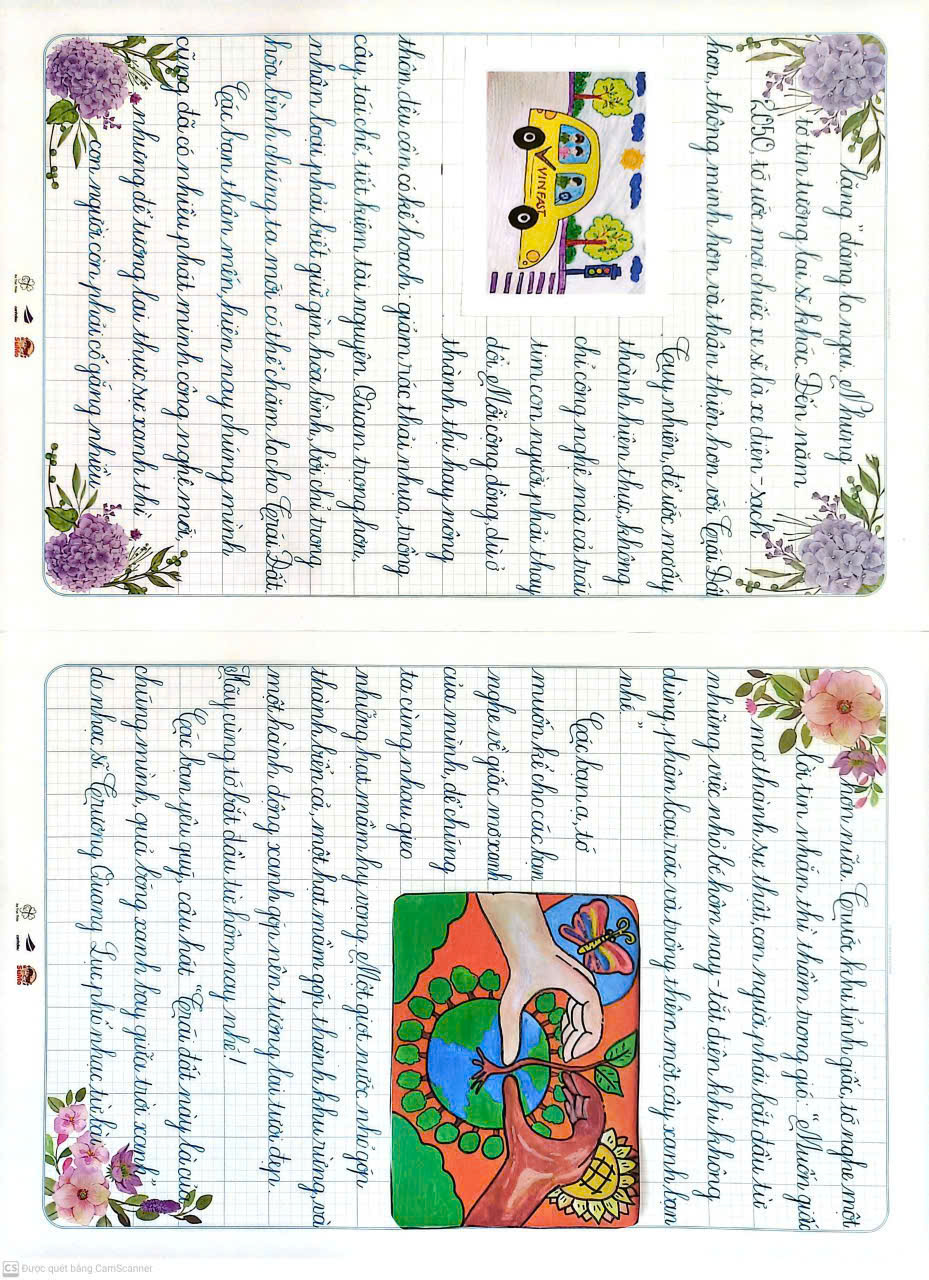 lặng" đáng lo ngại. Nhưng
tớ tin tương lai sẽ khác. Đến năm
2050, tớ ước mọi chiếc xe sẽ là xe điện - sạch
hơn, thông minh hơn và thân thiện hơn với Trái Đất
VINFAST
Tuy nhiên, để ước mơ ấy
thành hiện thực, không
chỉ công nghệ mà cả trái
tim con người phải thay
đổi. Mỗi cộng đồng, dù ở
thành thị hay nông
thôn, đều cần có kế hoạch: giảm rác thải nhựa, trồng
cây, tái chế, tiết kiệm tài nguyên. Quan trọng hơn,
nhân loại phải biết giữ gìn hòa bình, bởi chỉ trong
hòa bình chúng ta mới có thể chăm lo cho Trái Đất.
Các bạn thân mến, hiện nay chúng mình
cũng đã có nhiều phát minh công nghệ mới,
nhưng để tương lai thực sự xanh thì
con người còn phải cố gắng nhiều
hơn nữa. Trước khi tỉnh giấc, tớ nghe một
lời tin nhắn thì thầm trong gió: "Muốn giấc
mơ thành sự thật, con người phải bắt đầu từ
những việc nhỏ bé hôm nay - tắt điện khi không
dùng, phân loại rác và trồng thêm một cây xanh bạn
nhé."
Các bạn ạ, tớ
muốn kể cho các bạn
nghe về giấc mơ xanh
của mình, để chúng
ta cùng nhau gieo
những hạt mầm hy vọng. Một giọt nước nhỏ góp
thành biển cả, một hạt mầm góp thành khu rừng, và
một hành động xanh góp nên tương lai tươi đẹp.
Hãy cùng tớ bắt đầu từ hôm nay nhé!
Các bạn yêu quý, câu hát "Trái đất này là của
chúng mình, quả bóng xanh bay giữa trời xanh"
do nhạc sĩ Trương Quang Lục phổ nhạc từ bài
CS Được quét bằng CamScanner